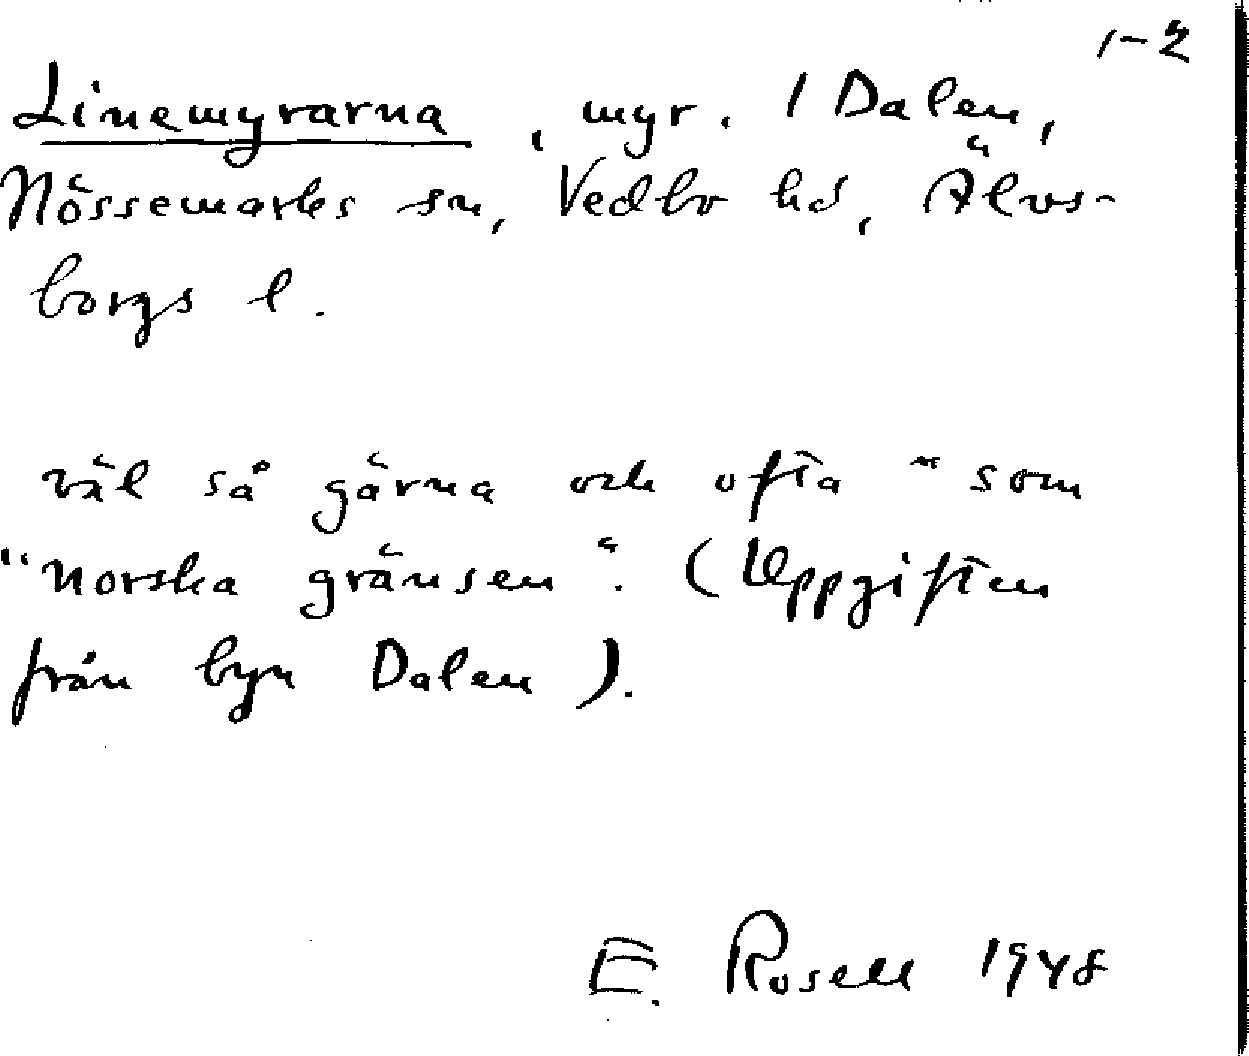 1-2
Linemyrarna, myr. / Dalen,
Nössemarks sn, Vedbo hd, Älvs-
borgs l.
väl så gärna och ofta " som
"norska gränsen". (Uppgiften
från byn Dalen).
E. Rosell 1948